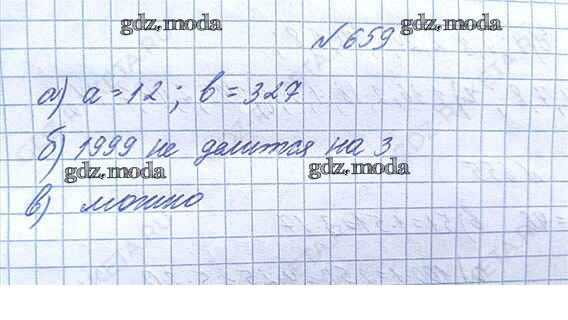 gdz.moda gdz.moda
№ 659
а) a = 12 ; b = 327
б) 1999 не делится на 3
gdz.moda gdz.moda
в) можно